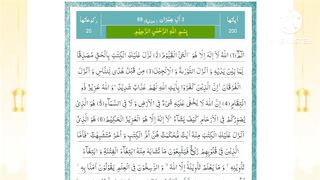 اٰیاتها
200
3 اٰلِ عِمْرٰن مَدَنِیَّة 89
ركوعاتها
20
بِسْمِ اللّٰهِ الرَّحْمٰنِ الرَّحِیْمِ
الٓمّٓ(1) اللّٰهُ لَاۤ اِلٰهَ اِلَّا هُوَۙ الْحَیُّ الْقَیُّوْمُؕ(2) نَزَّلَ عَلَیْكَ الْكِتٰبَ بِالْحَقِّ مُصَدِّقًا
لِّمَا بَیْنَ یَدَیْهِ وَ اَنْزَلَ التَّوْرٰىةَ وَ الْاِنْجِیْلَۙ(3) مِنْ قَبْلُ هُدًى لِّلنَّاسِ وَ اَنْزَلَ
الْفُرْقَانَ۬ؕ اِنَّ الَّذِیْنَ كَفَرُوْا بِاٰیٰتِ اللّٰهِ لَهُمْ عَذَابٌ شَدِیْدٌؕ وَ اللّٰهُ عَزِیْزٌ ذُو
انْتِقَامٍ(4) اِنَّ اللّٰهَ لَا یَخْفٰى عَلَیْهِ شَیْءٌ فِی الْاَرْضِ وَ لَا فِی السَّمَآءِؕ(5) هُوَ الَّذِیْ
یُصَوِّرُكُمْ فِی الْاَرْحَامِ كَیْفَ یَشَآءُؕ لَاۤ اِلٰهَ اِلَّا هُوَ الْعَزِیْزُ الْحَكِیْمُ(6) هُوَ الَّذِیْۤ
اَنْزَلَ عَلَیْكَ الْكِتٰبَ مِنْهُ اٰیٰتٌ مُّحْكَمٰتٌ هُنَّ اُمُّ الْكِتٰبِ وَ اُخَرُ مُتَشٰبِهٰتٌؕ فَاَمَّا
الَّذِیْنَ فِیْ قُلُوْبِهِمْ زَیْغٌ فَیَتَّبِعُوْنَ مَا تَشَابَهَ مِنْهُ ابْتِغَآءَ الْفِتْنَةِ وَ ابْتِغَآءَ
تَاْوِیْلِهٖۚ وَ مَا یَعْلَمُ تَاْوِیْلَهٗۤ اِلَّا اللّٰهُ وَ الرّٰسِخُوْنَ فِی الْعِلْمِ یَقُوْلُوْنَ اٰمَنَّا بِهٖۙ